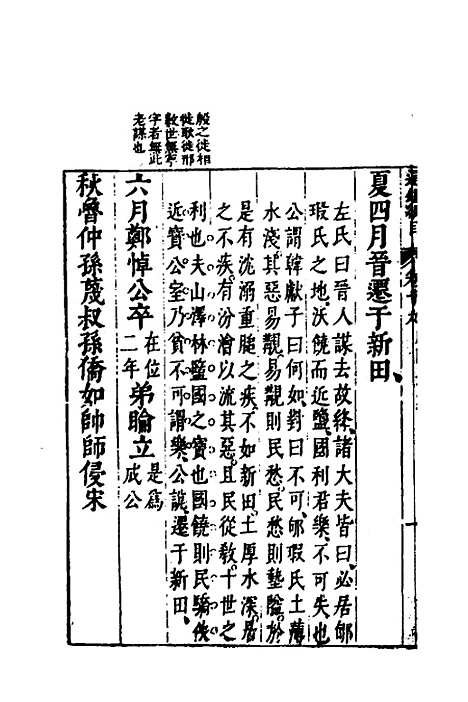 殷之徙相
徙耿徙邢
數世無
字者無此
老謀也
夏四月晉遷于新田
左氏曰晉人謀去故絳諸大夫皆曰必居郇
瑕氏之地沃饒而近鹽國利君樂不可失也
公謂韓獻子曰何如對曰不可郇瑕氏土薄
水淺其惡易覯易覯則民愁民愁則墊隘於
是有沈溺重膇之疾不如新田土厚水深居
之不疾有汾澮以流其惡且民從教十世之
利也夫山澤林鹽國之寶也國饒則民驕佚
近寶公室乃貧不可謂樂公說遷于新田
六月鄭悼公卒在位二年弟睔立是爲成公
秋魯仲孫蔑叔孫僑如帥師侵宋